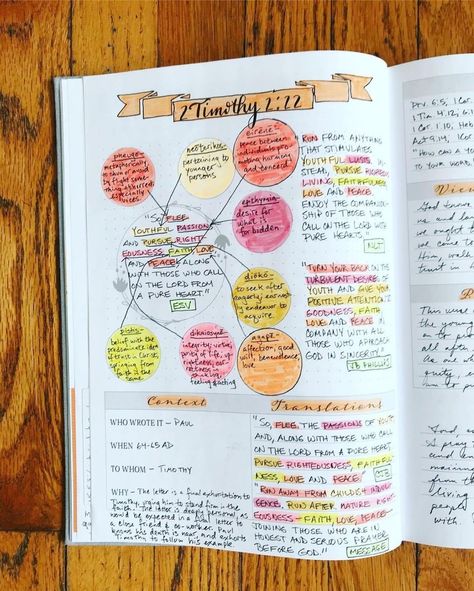 2 Timothy 2:22
pheugo-
metaphorically
to shun or avoid
by flight some-
thing abhorred,
especially
vices
neōterikos-
pertaining to
younger
persons
eirēnē-
peace between
individuals pro-
moting harmony
and concord
epithymia-
desire for
what is
forbidden
"So FLEE
YOUTHFUL PASSION
AND PURSUE RIGHT-
EOUSNESS, FAITH, LOVE
AND PEACE ALONG
WITH THOSE WHO CALL
ON THE LORD FROM
A PURE HEART."
ESV
diōkō-
to seek after
eagerly, earnestly
endeavor to
acquire
pistis-
belief with the
predominate idea
of trust in Christ,
springing from
faith in the
same
dikaiosynē-
integrity, virtue,
purity of life,
rightness,
correctness in
thinking,
feeling, acting
agapē-
affection, good
will, benevolence,
love
RUN FROM ANYTHING
THAT STIMULATES
YOUTHFUL LUSTS. IN-
STEAD, PURSUE RIGHTEOUS
LIVING, FAITHFULNESS,
LOVE AND PEACE.
ENJOY THE COMPANION-
SHIP OF THOSE WHO
CALL ON THE LORD WITH
PURE HEARTS."
NLT
"TURN YOUR BACK ON THE
TURBULENT DESIRES OF
YOUTH AND GIVE YOUR
POSITIVE ATTENTION TO
GOODNESS, FAITH,
LOVE AND PEACE IN
COMPANY WITH ALL
THOSE WHO APPROACH
GOD IN SINCERITY."
JB PHILLIPS
Context
WHO WROTE IT – PAUL
WHEN 64-65 AD
TO WHOM – TIMOTHY
WHY – The letter is a final exhortation to
Timothy, urging him to stand firm in the
faith. The letter is deeply personal as
would be expected in a final letter to
a close friend & co worker. Paul
knows his death is near, and exhorts
Timothy to follow his example.
Translations
"So, FLEE THE PASSIONS OF YOUTH
AND, ALONG WITH THOSE WHO CALL
ON THE LORD FROM A PURE HEART,
PURSUE RIGHTEOUSNESS, FAITHFUL-
NESS, LOVE AND PEACE."
CJB
"RUN AWAY FROM CHILDISH INDUL-
GENCE. RUN AFTER MATURE RIGHT-
EOUSNESS – FAITH, LOVE, PEACE –
JOINING THOSE WHO ARE IN
HONEST AND SERIOUS PRAYER
BEFORE GOD."
MESSAGE